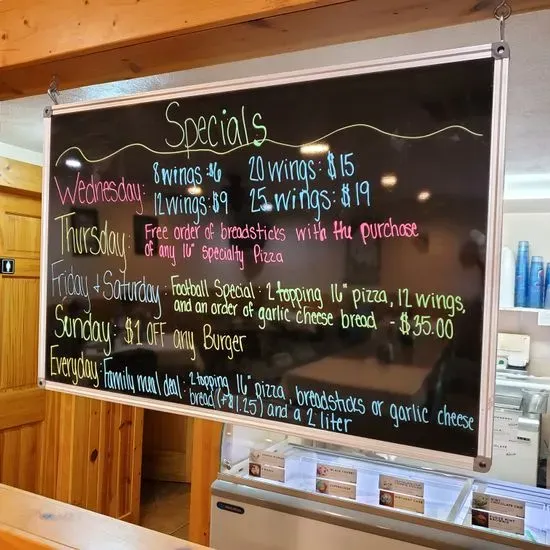 Specials
Wednesday: 8 wings $6 20 wings: $15
12 wings: $9 25 wings: $19
Thursday: Free order of breadsticks with the purchase
of any 16" specialty Pizza
Friday & Saturday: Football Special: 2 topping 16" pizza, 12 wings,
and an order of garlic cheese bread - $35.00
Sunday: $1 OFF any Burger
Everyday: Family meal deal: 2 topping 16" pizza, breadsticks or garlic cheese
bread (+$1.25) and a 2 liter